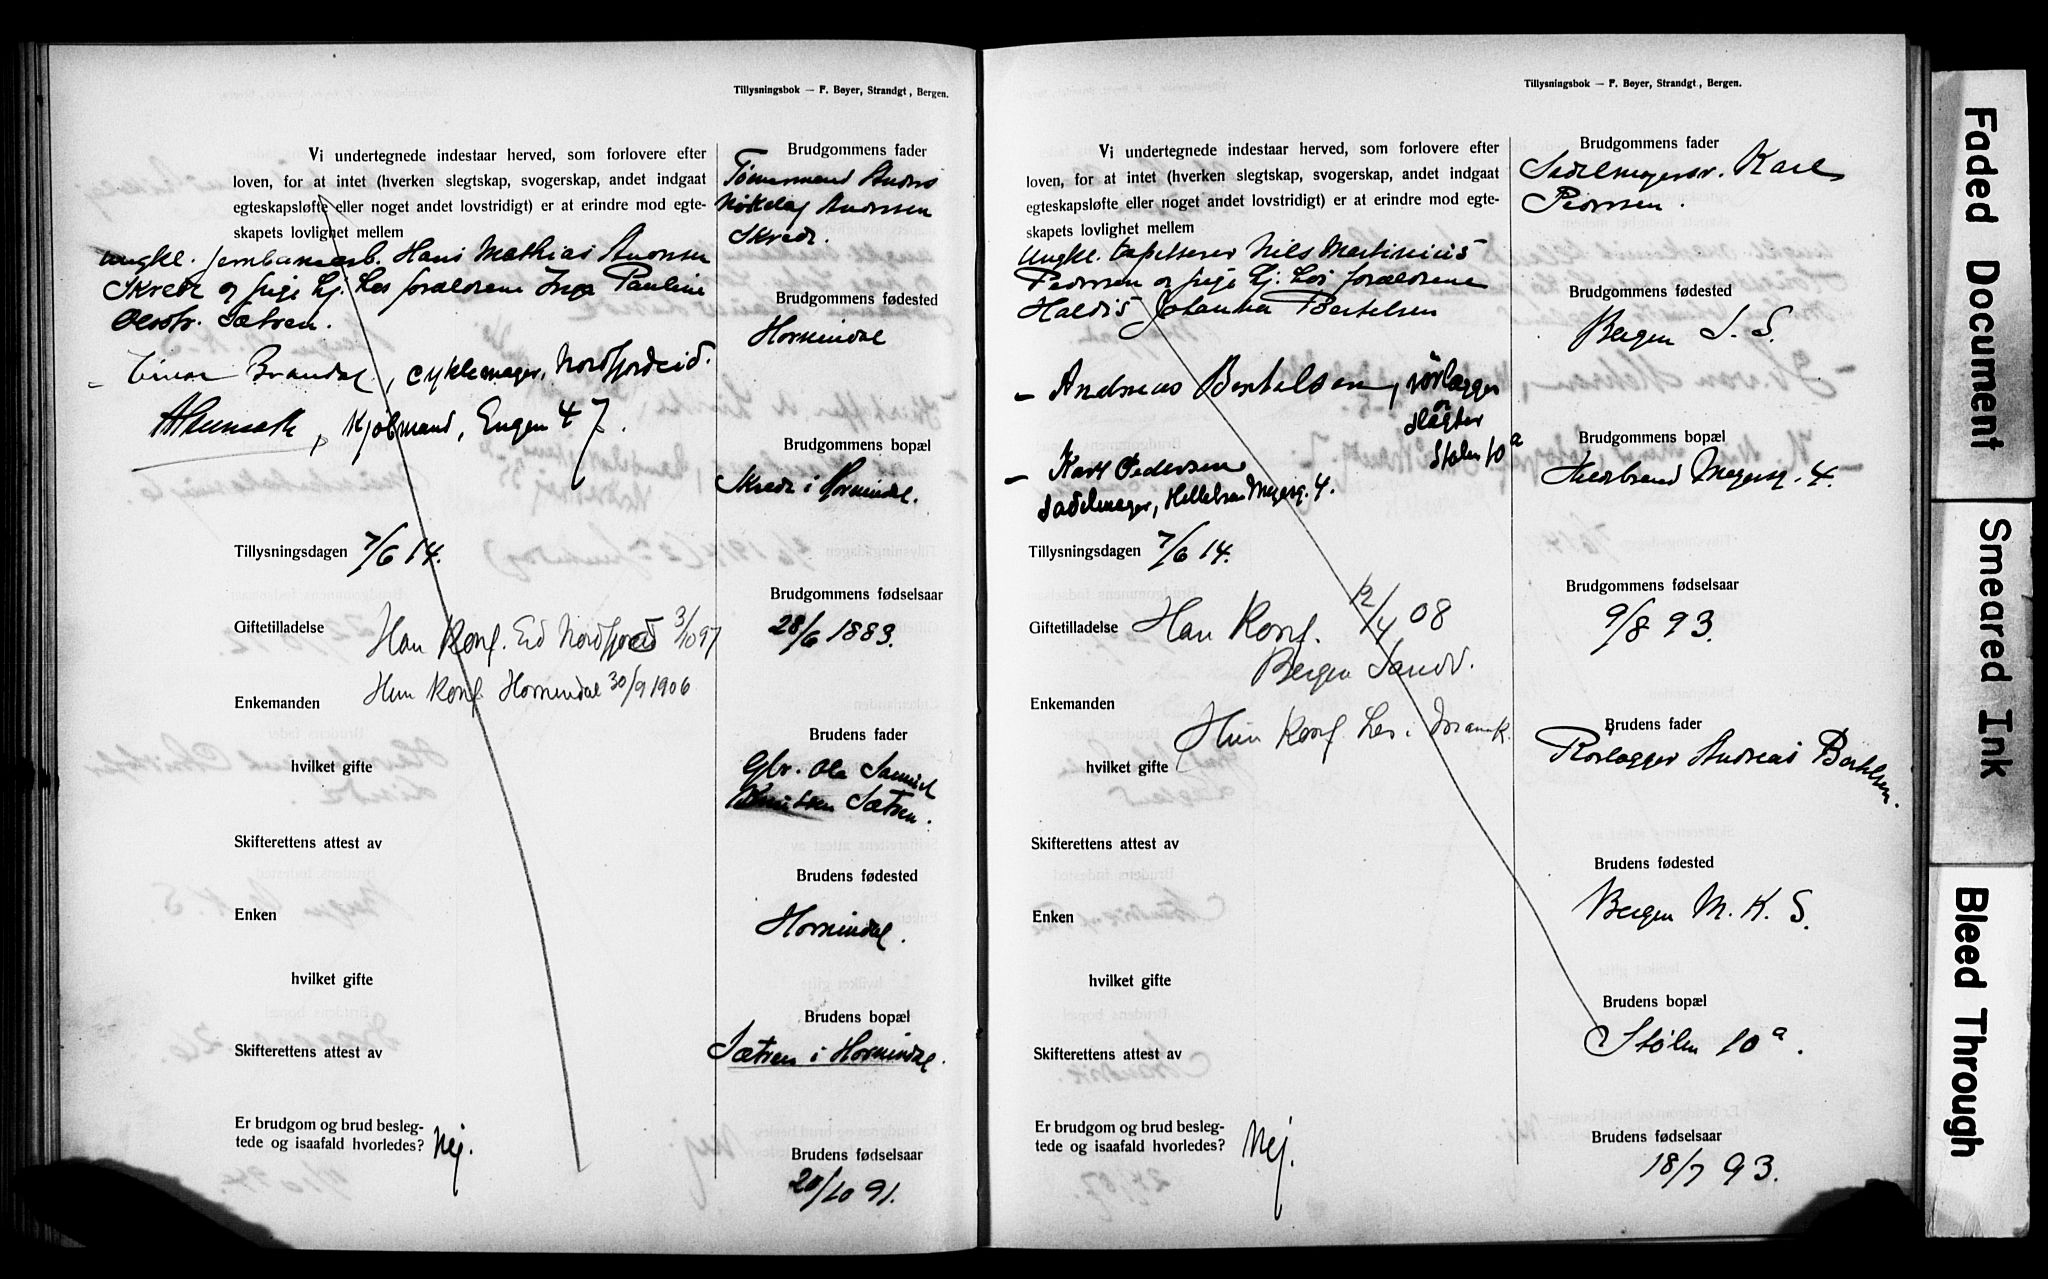 Tillysningsbok — F. Beyer, Strandgt, Bergen.
Vi undertegnede indestaar herved, som forlovere efter
loven, for at intet (hverken slegtskap, svogerskap, andet indgaat
egteskapsløfte eller noget andet lovstridigt) er at erindre mod egte-
skapets lovlighet mellem
ungkl. jernbanearb. Hans Mathias Andersen
Skrede og pige hj. hos forældrene Inga Pauline
Olsdtr. Sætren.
Einar Brandal, cyklemager, Nordfjordeid.
Kjøbmand, Engen 47.
Tillysningsdagen 7/6 14.
Giftetilladelse
Han Konf. Eid Nordfjord 3/10 97
Hun Konf Hornindal 30/9 1906
Enkemanden
hvilket gifte
Skifterettens attest av
Enken
hvilket gifte
Skifterettens attest av
Er brudgom og brud besleg-
tede og isaafald hvorledes? Nej.
Brudgommens fader
Tømmermand Anders
Andersen
Skrede.
Brudgommens fødested
Hornindal
Brudgommens bopæl
Skrede i Hornindal.
Brudgommens fødselsaar
28/6 1883.
Brudens fader
Gbr. Ola Samuel
Knutsen Sætren.
Brudens fødested
Hornindal.
Brudens bopæl
Sætren i Hornindal.
Brudens fødselsaar
20/10 91.
Tillysningsbok — F. Beyer, Strandgt, Bergen.
Vi undertegnede indestaar herved, som forlovere efter
loven, for at intet (hverken slegtskap, svogerskap, andet indgaat
egteskapsløfte eller noget andet lovstridigt) er at erindre mod egte-
skapets lovlighet mellem
Ungkl. tapetserer Nils Martinius
Pedersen og pige hj. hos forældrene
Haldis Johanna Bertelsen
– Andreas Bertelsen, rørlægger
og
Slagter
Stølen 10a
– Karl Pedersen
Sadelmager, Hillebrand Meyersg. 4.
Tillysningsdagen 7/6 14.
Giftetilladelse Han Konf. 12/4 08
Bergen Sandv.
Enkemanden
Hun Konf. hos i Mariak.
hvilket gifte
Skifterettens attest av
Enken
hvilket gifte
Skifterettens attest av
Er brudgom og brud besleg-
tede og isaafald hvorledes? Nej.
Brudgommens fader
Sadelmagersv. Karl
Pedersen.
Brudgommens fødested
Bergen S. S.
Brudgommens bopæl
Hildbrand Meyersg. 4.
Brudgommens fødselsaar
9/8 93.
Brudens fader
Rørlægger Andreas Bertelsen.
Brudens fødested
Bergen M. K. S.
Brudens bopæl
Stølen 10a.
Brudens fødselsaar
18/7 93.
Faded Document
Smeared Ink
Bleed Through